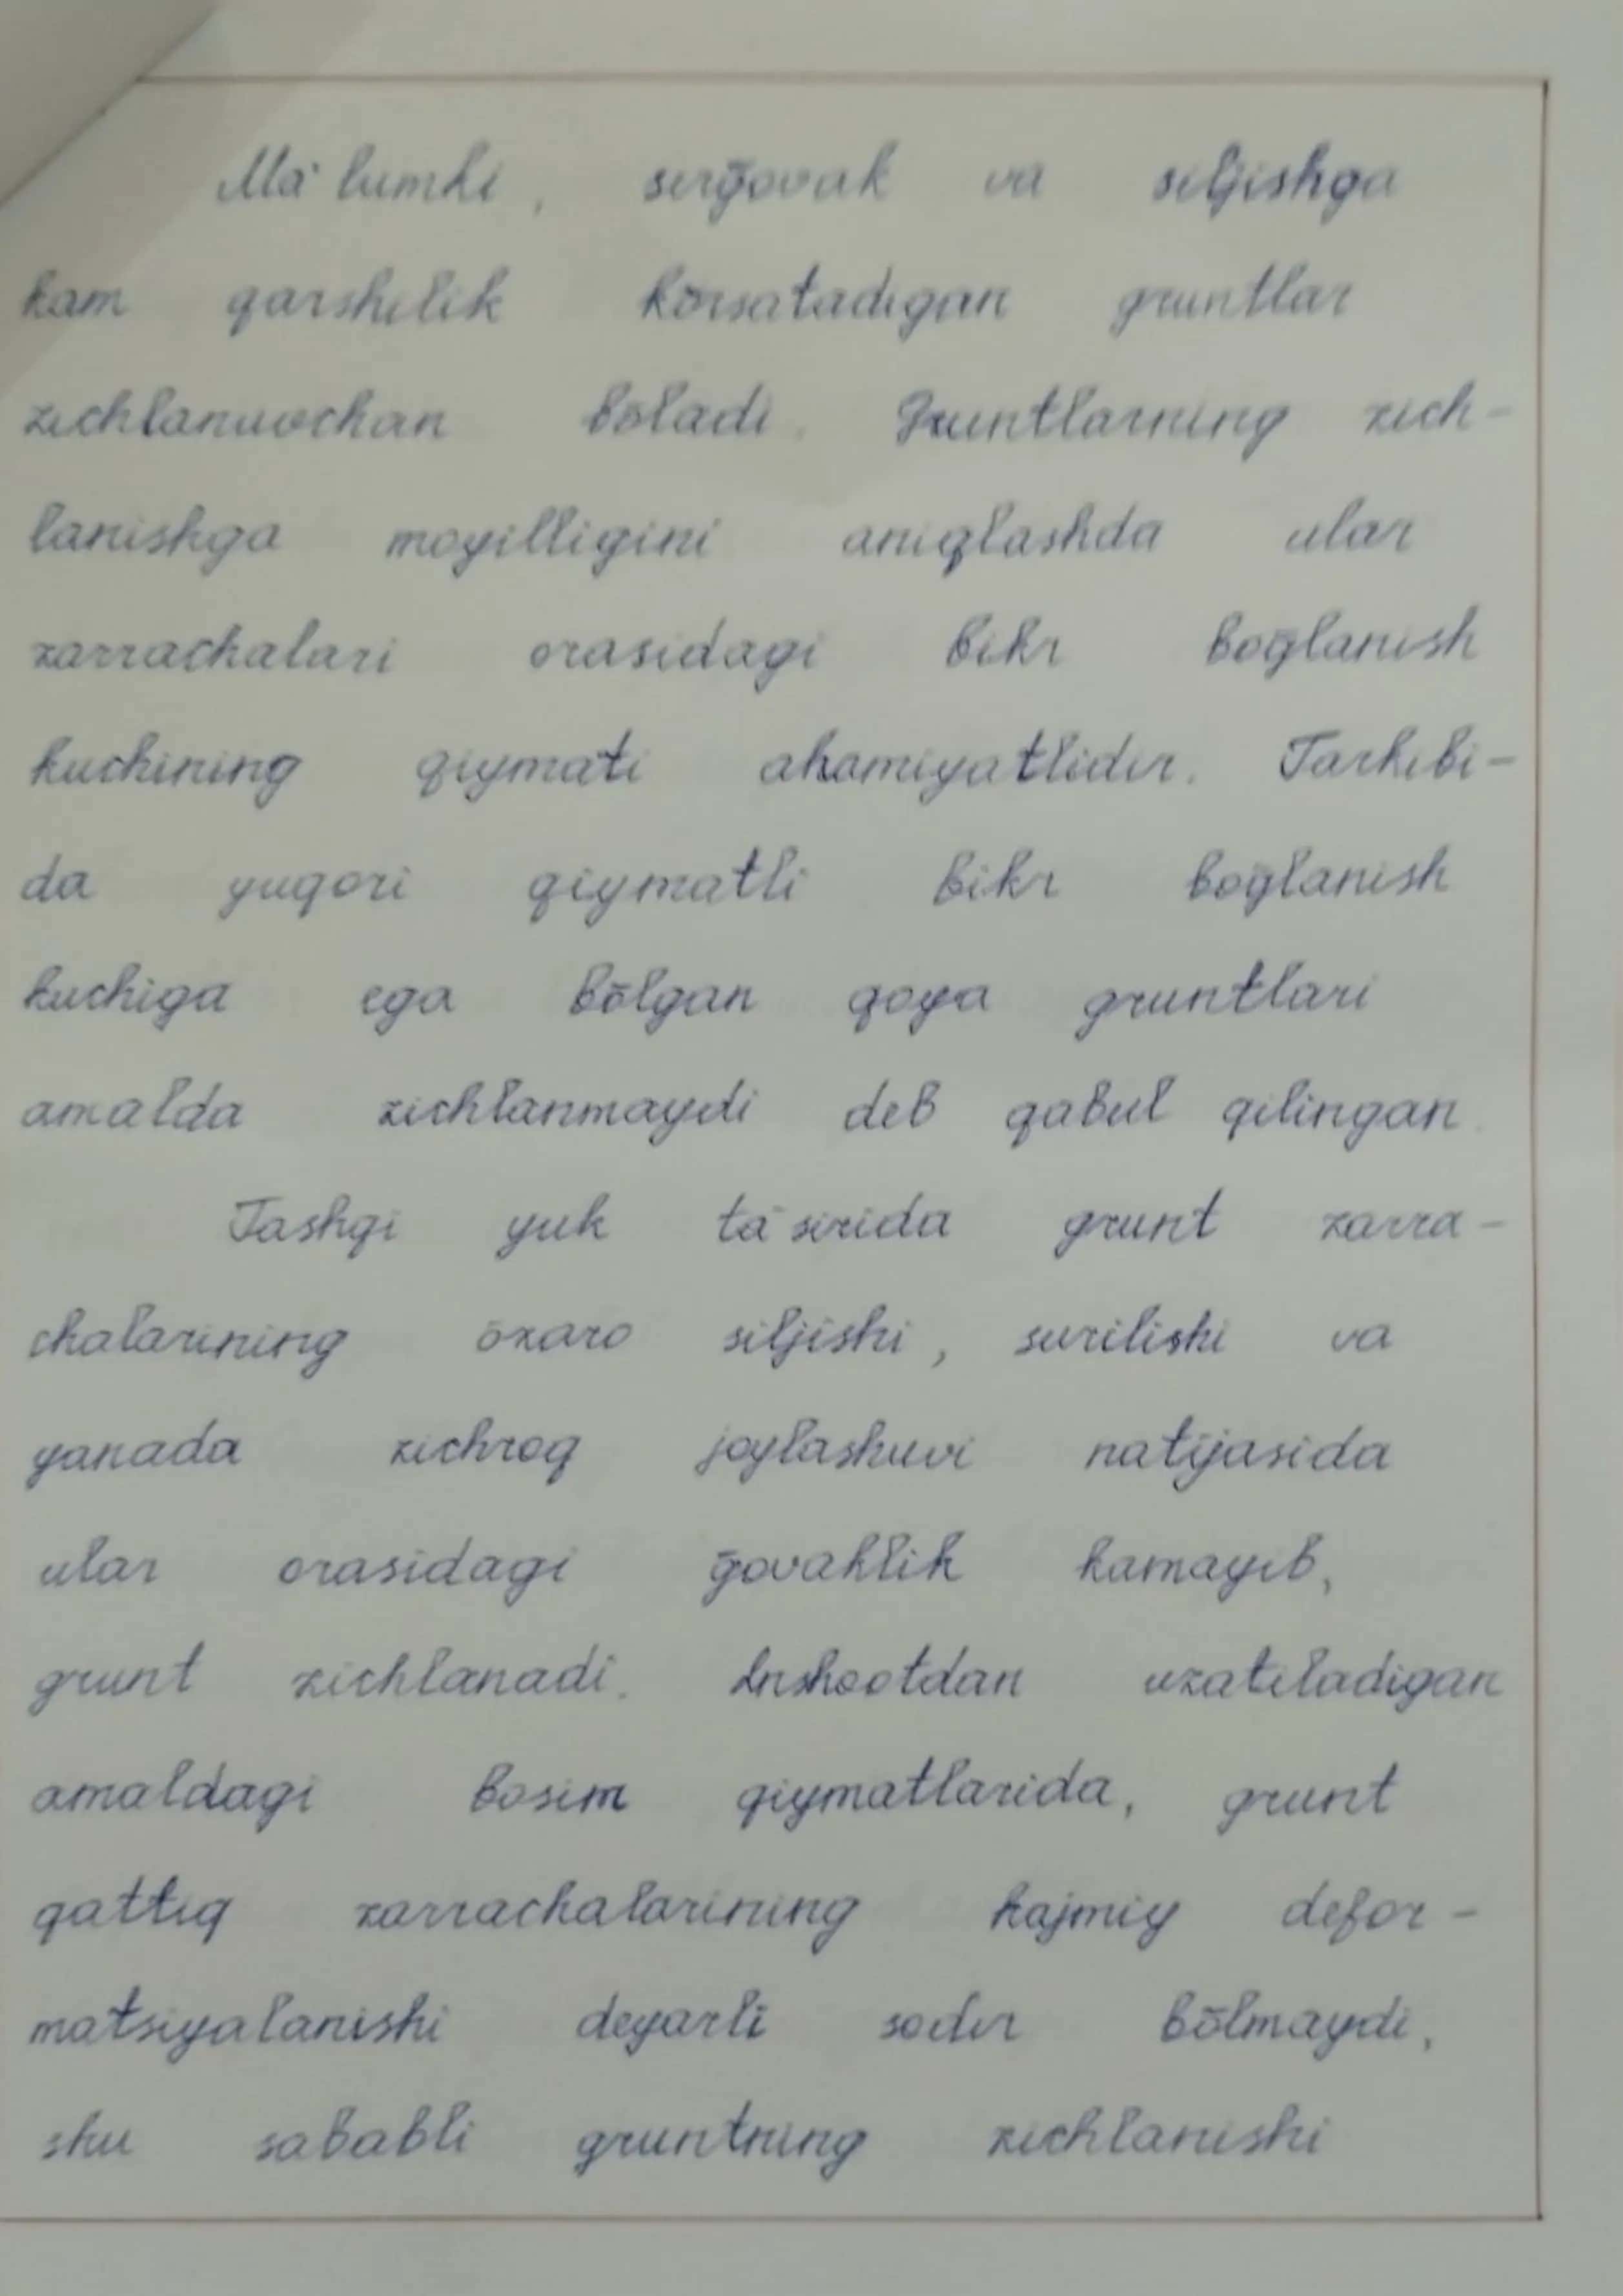 Ma'lumki, serḡovak va siljishga
kam qarshilik kōrsatadigan gruntlar
zichlanuvchan bōladi. Gruntlarning zich-
lanishga moyilligini aniqlashda ular
zarrachalari orasidagi bikr boḡlanish
kuchining qiymati ahamiyatlidir. Tarkibi-
da yuqori qiymatli bikr boḡlanish
kuchiga ega bōlgan qoya gruntlari
amalda zichlanmaydi deb qabul qilingan.
Tashqi yuk ta'sirida grunt zarra-
chalarining ōzaro siljishi, surilishi va
yanada zichroq joylashuvi natijasida
ular orasidagi ḡovaklik kamayib,
grunt zichlanadi. Inshootdan uzatiladigan
amaldagi bosim qiymatlarida, grunt
qattiq zarrachalarining hajmiy defor-
matsiyalanishi deyarli sodir bōlmaydi,
shu sababli gruntning zichlanishi